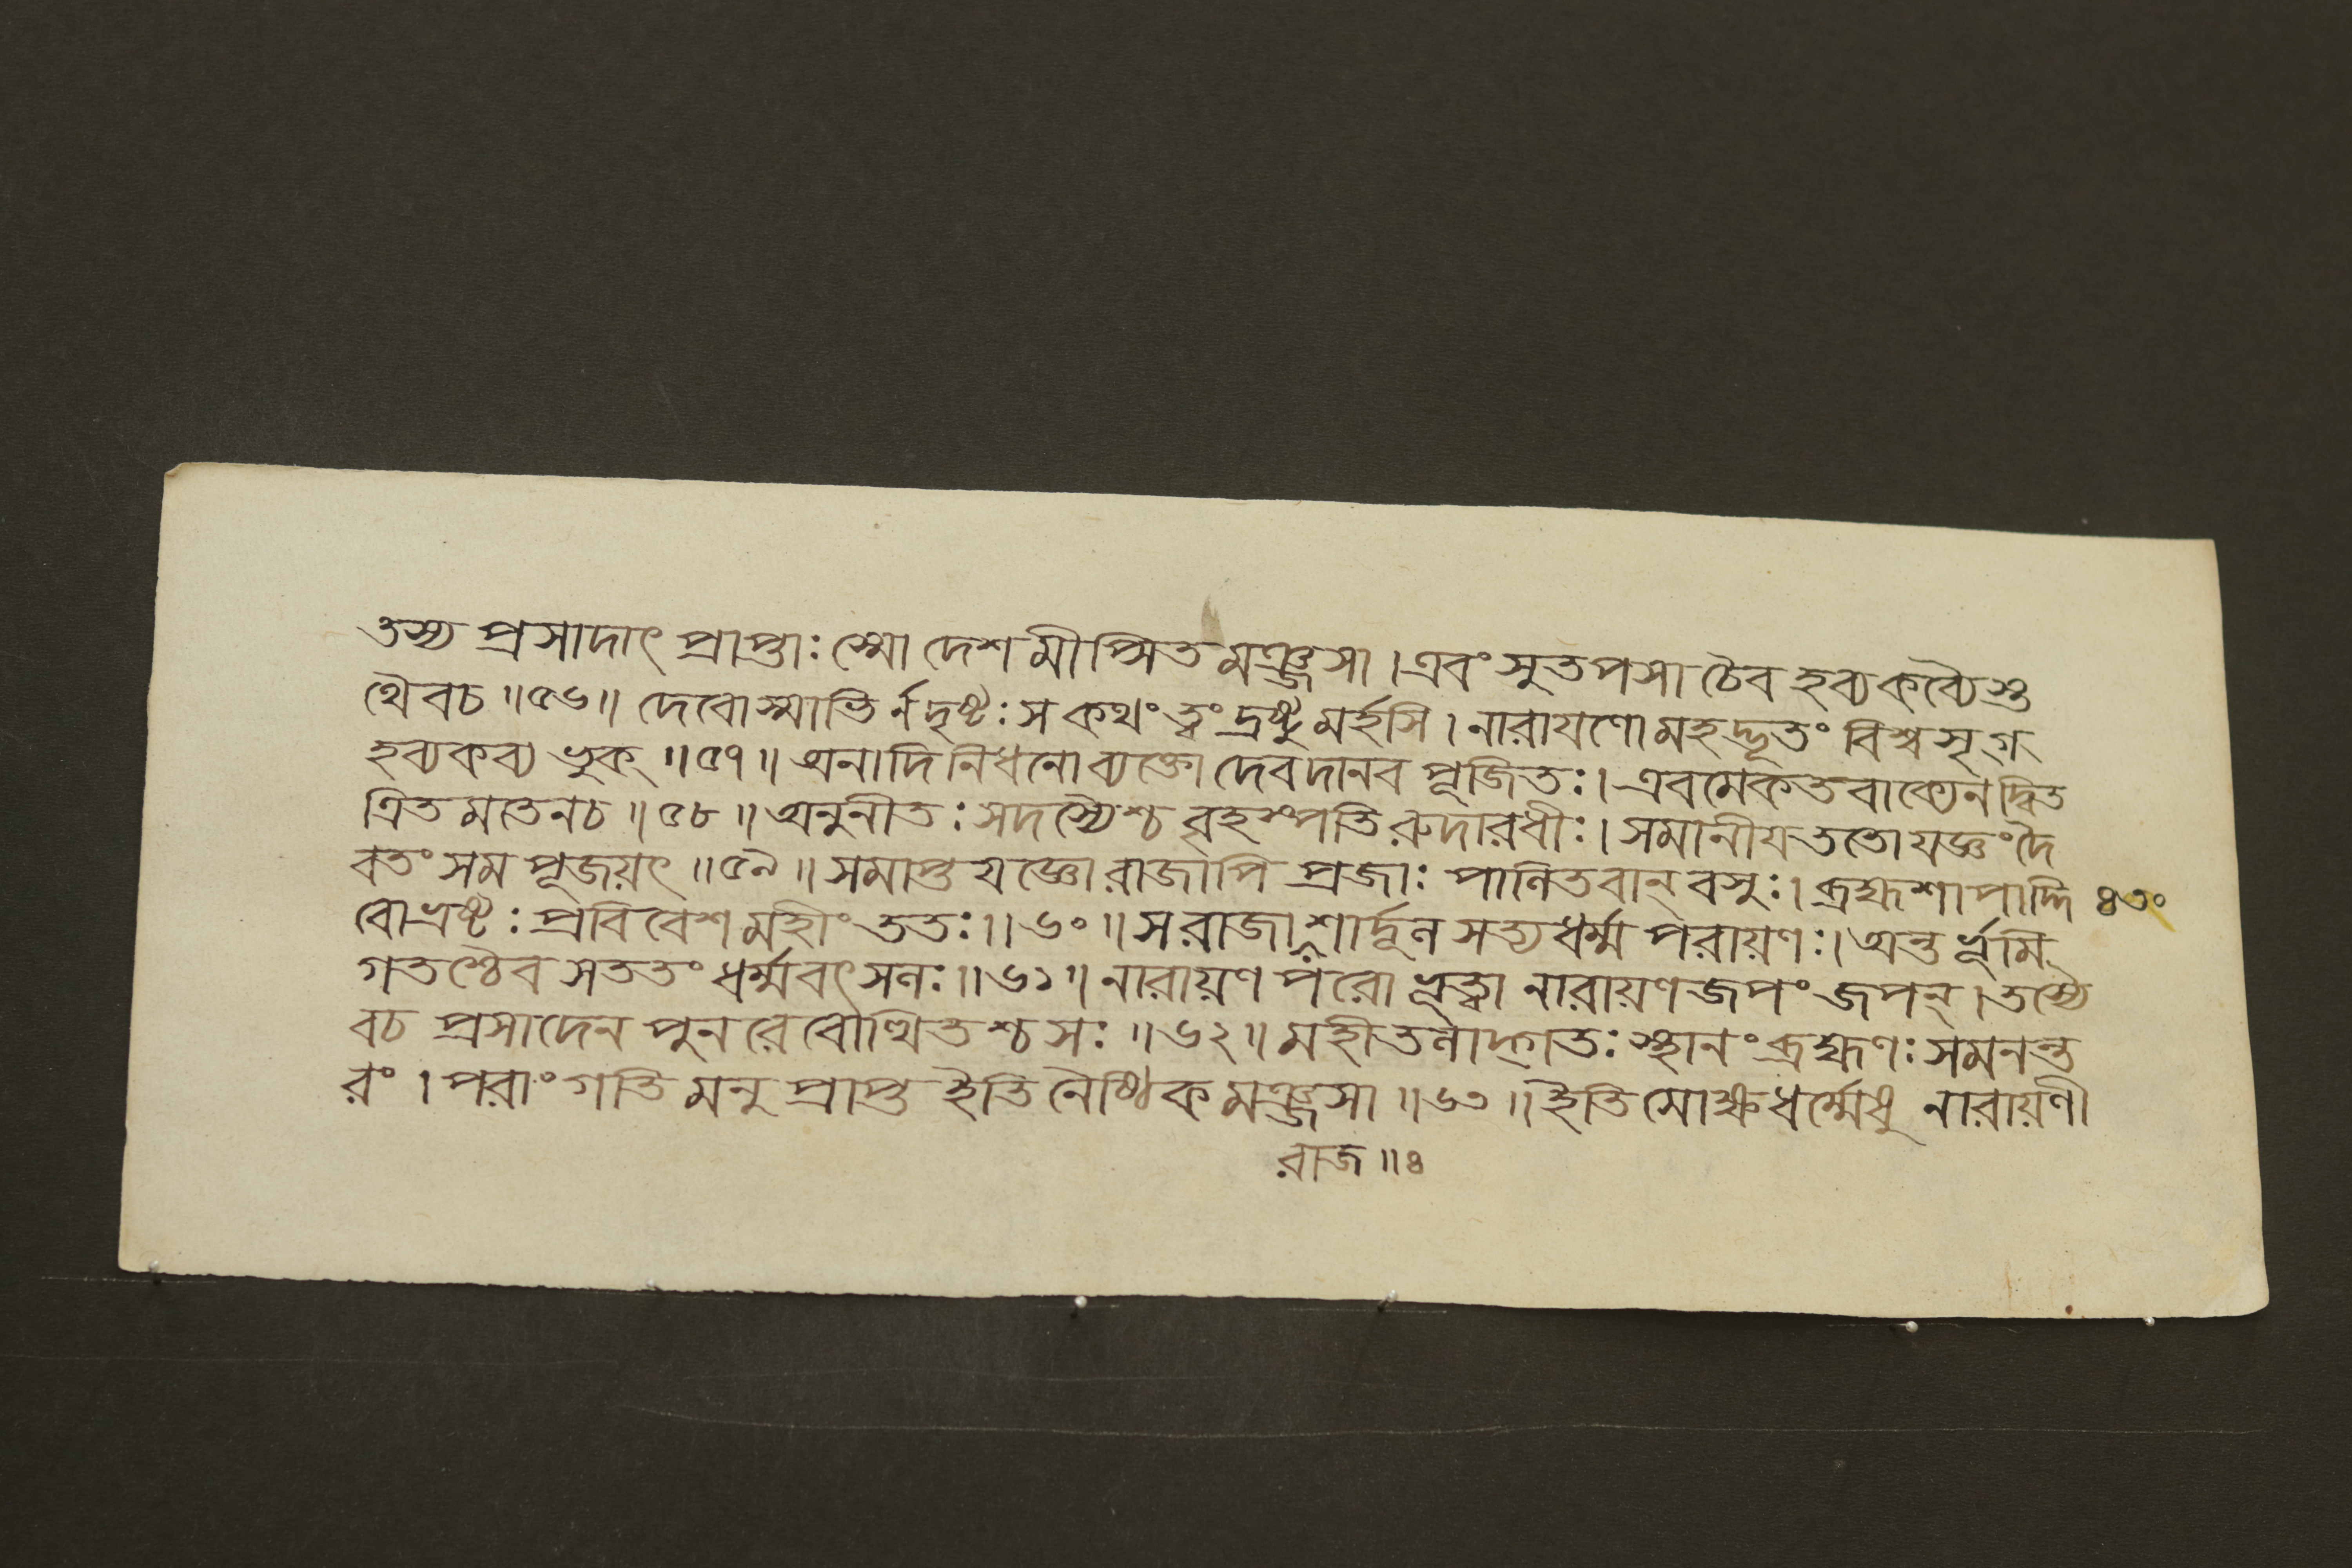 তস্য প্রসাদাৎ প্রাপ্তাঃ স্মো দেশমীপ্সিতমঞ্জসা । এবং সুতপসা চৈব হব্যকব্যৈস্ত
থৈবচ ॥৫৬॥ দেবোস্মাভির্নদৃষ্টঃ স কথং ত্বং দ্রষ্টুমর্হসি । নারাযণো মহদ্ভূতং বিশ্বসৃগ্
হব্যকব্য ভুক্ ॥৫৭॥ অনাদি নিধনোব্যক্তো দেবদানব পূজিতঃ । এবমেকতবাক্যেন দ্বিত
ত্রিত মতেনচ ॥৫৮॥ অনুনীতঃ সদস্যৈশ্চ বৃহস্পতিরুদারধীঃ । সমানীযততো যজ্ঞং দৈ
বতং সম পূজয়ৎ ॥৫৯॥ সমাপ্ত যজ্ঞো রাজাপি প্রজাঃ পালিতবান্ বসুঃ । ব্রহ্মশাপাদ্দি ৪৩০
বোভ্রষ্টঃ প্রবিবেশ মহীং ততঃ ॥৬০॥ স রাজা শার্দূল সত্যধর্ম্ম পরায়ণঃ । অন্তর্ভূমি
গতশ্চৈব সততং ধর্ম্মবৎসলঃ ॥৬১॥ নারায়ণ পরো ভূত্বা নারায়ণজপং জপন্ । তস্যৈ
বচ প্রসাদেন পুনরেবোত্থিতশ্চ সঃ ॥৬২॥ মহীতলাদ্গতঃ স্থানং ব্রহ্মণঃ সমনন্ত
রং । পরাং গতি মনু প্রাপ্ত ইতি নৈষ্ঠিক মঞ্জসা ॥৬৩॥ ইতি মোক্ষধর্ম্মেষু নারায়ণী
রাজ ॥৪